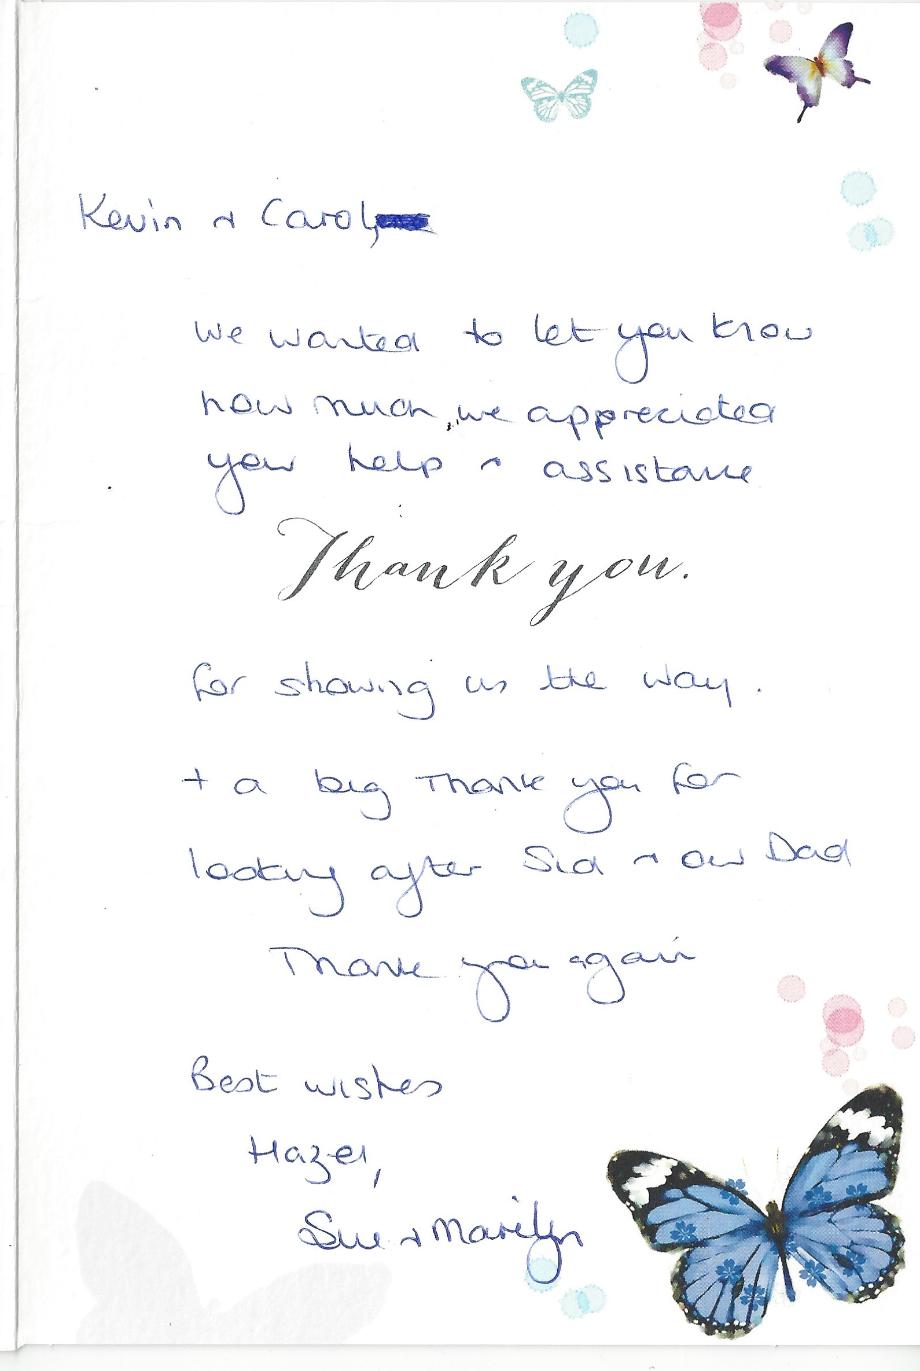 Kevin & Carol
We wanted to let you know
how much, we appreciated
your help & assistance
Thank you.
for showing us the way.
+ a big Thank you for
looking after Sid & our Dad
Thank you again
Best wishes
Hazel,
Sue & Marilyn